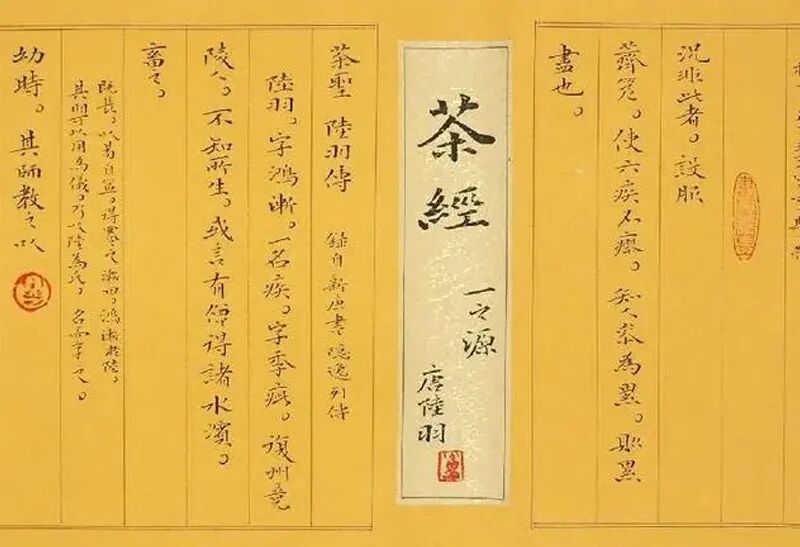 況非此者。設服
薺苨。使六疾不瘳。知人參為累。則累
盡也。
茶經
一之源
唐陸羽
茶聖 陸羽傳 錄自新唐書隱逸列傳
陸羽。字鴻漸。一名疾。字季疵。復州竟
陵人。不知所生。或言有僧得諸水濱。
畜之。
既長。以易自筮。得蹇之漸曰。鴻漸於陸。
其羽可以用為儀。乃以陸為氏。名而字之。
幼時。其師教之以